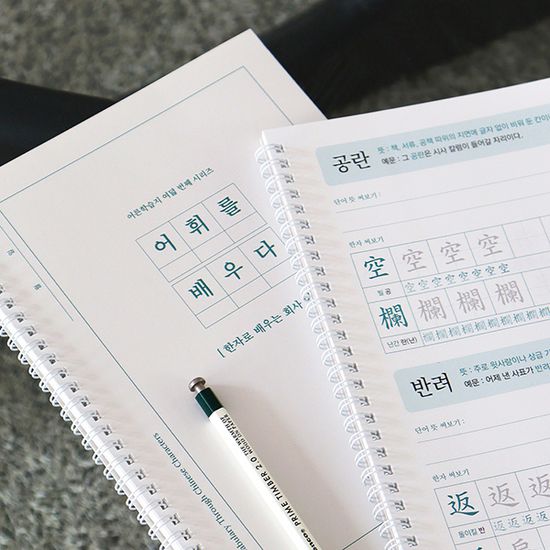 어른학습지 여덟 번째 시리즈
어휘를
배우다
한자로 배우는 회사
Vocabulary Through Chinese Characters
PRIME TIMBER 2.0
공란
뜻 : 책, 서류, 공책 따위의 지면에 글자 없이 비워 둔 칸이나
예문 : 그 공란은 시사 칼럼이 들어갈 자리이다.
단어 뜻 써보기 :
한자 써보기
空 空 空 空
빌 공 空空空空空空空空
欄 欄 欄 欄
난간 란(난) 欄欄欄欄欄欄欄欄
반려
뜻 : 주로 윗사람이나 상급 기
예문 : 어제 낸 사표가 반려
단어 뜻 써보기 :
한자 써보기
返 返 返
돌아킬 반 返返返返